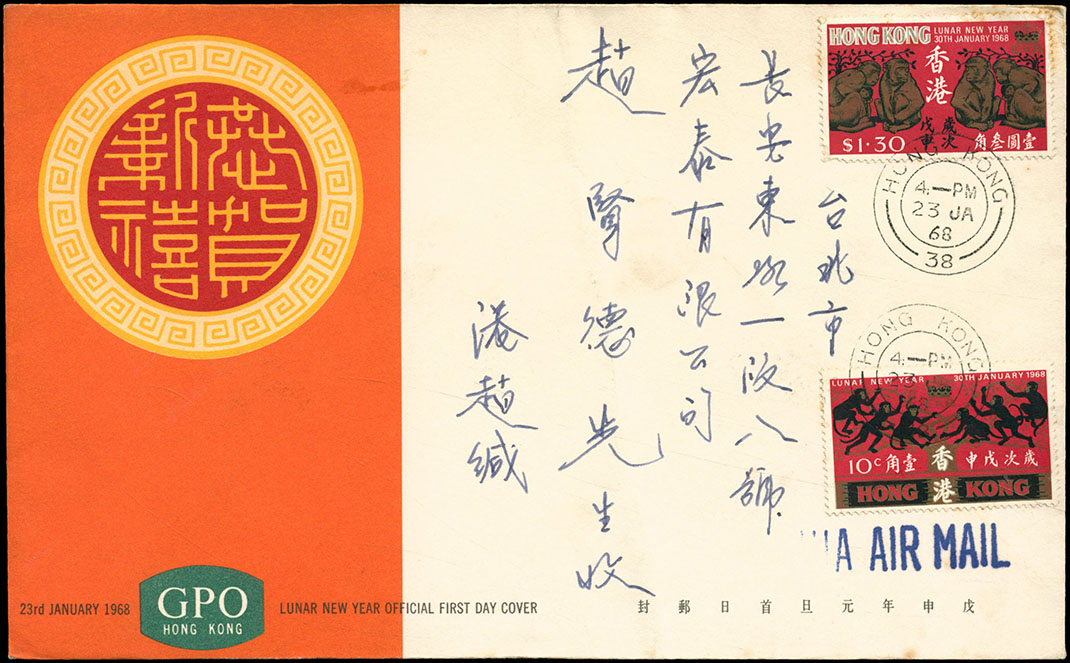 恭賀
新禧
23rd JANUARY 1968
GPO
HONG KONG
LUNAR NEW YEAR OFFICIAL FIRST DAY COVER
封郵日首旦元年申戊
台北市
長安東路一段八號
宏泰有限公司
趙賢德先生收
港趙緘
HONG KONG
LUNAR NEW YEAR
30TH JANUARY 1968
香港
歲次
戊申
$1.30
角叁圓壹
HONG KONG
4—PM
23 JA
68
38
HONG KONG
4—PM
23
LUNAR NEW YEAR
30TH JANUARY 1968
10c角壹
香港
申戊次歲
HONG KONG
VIA AIR MAIL